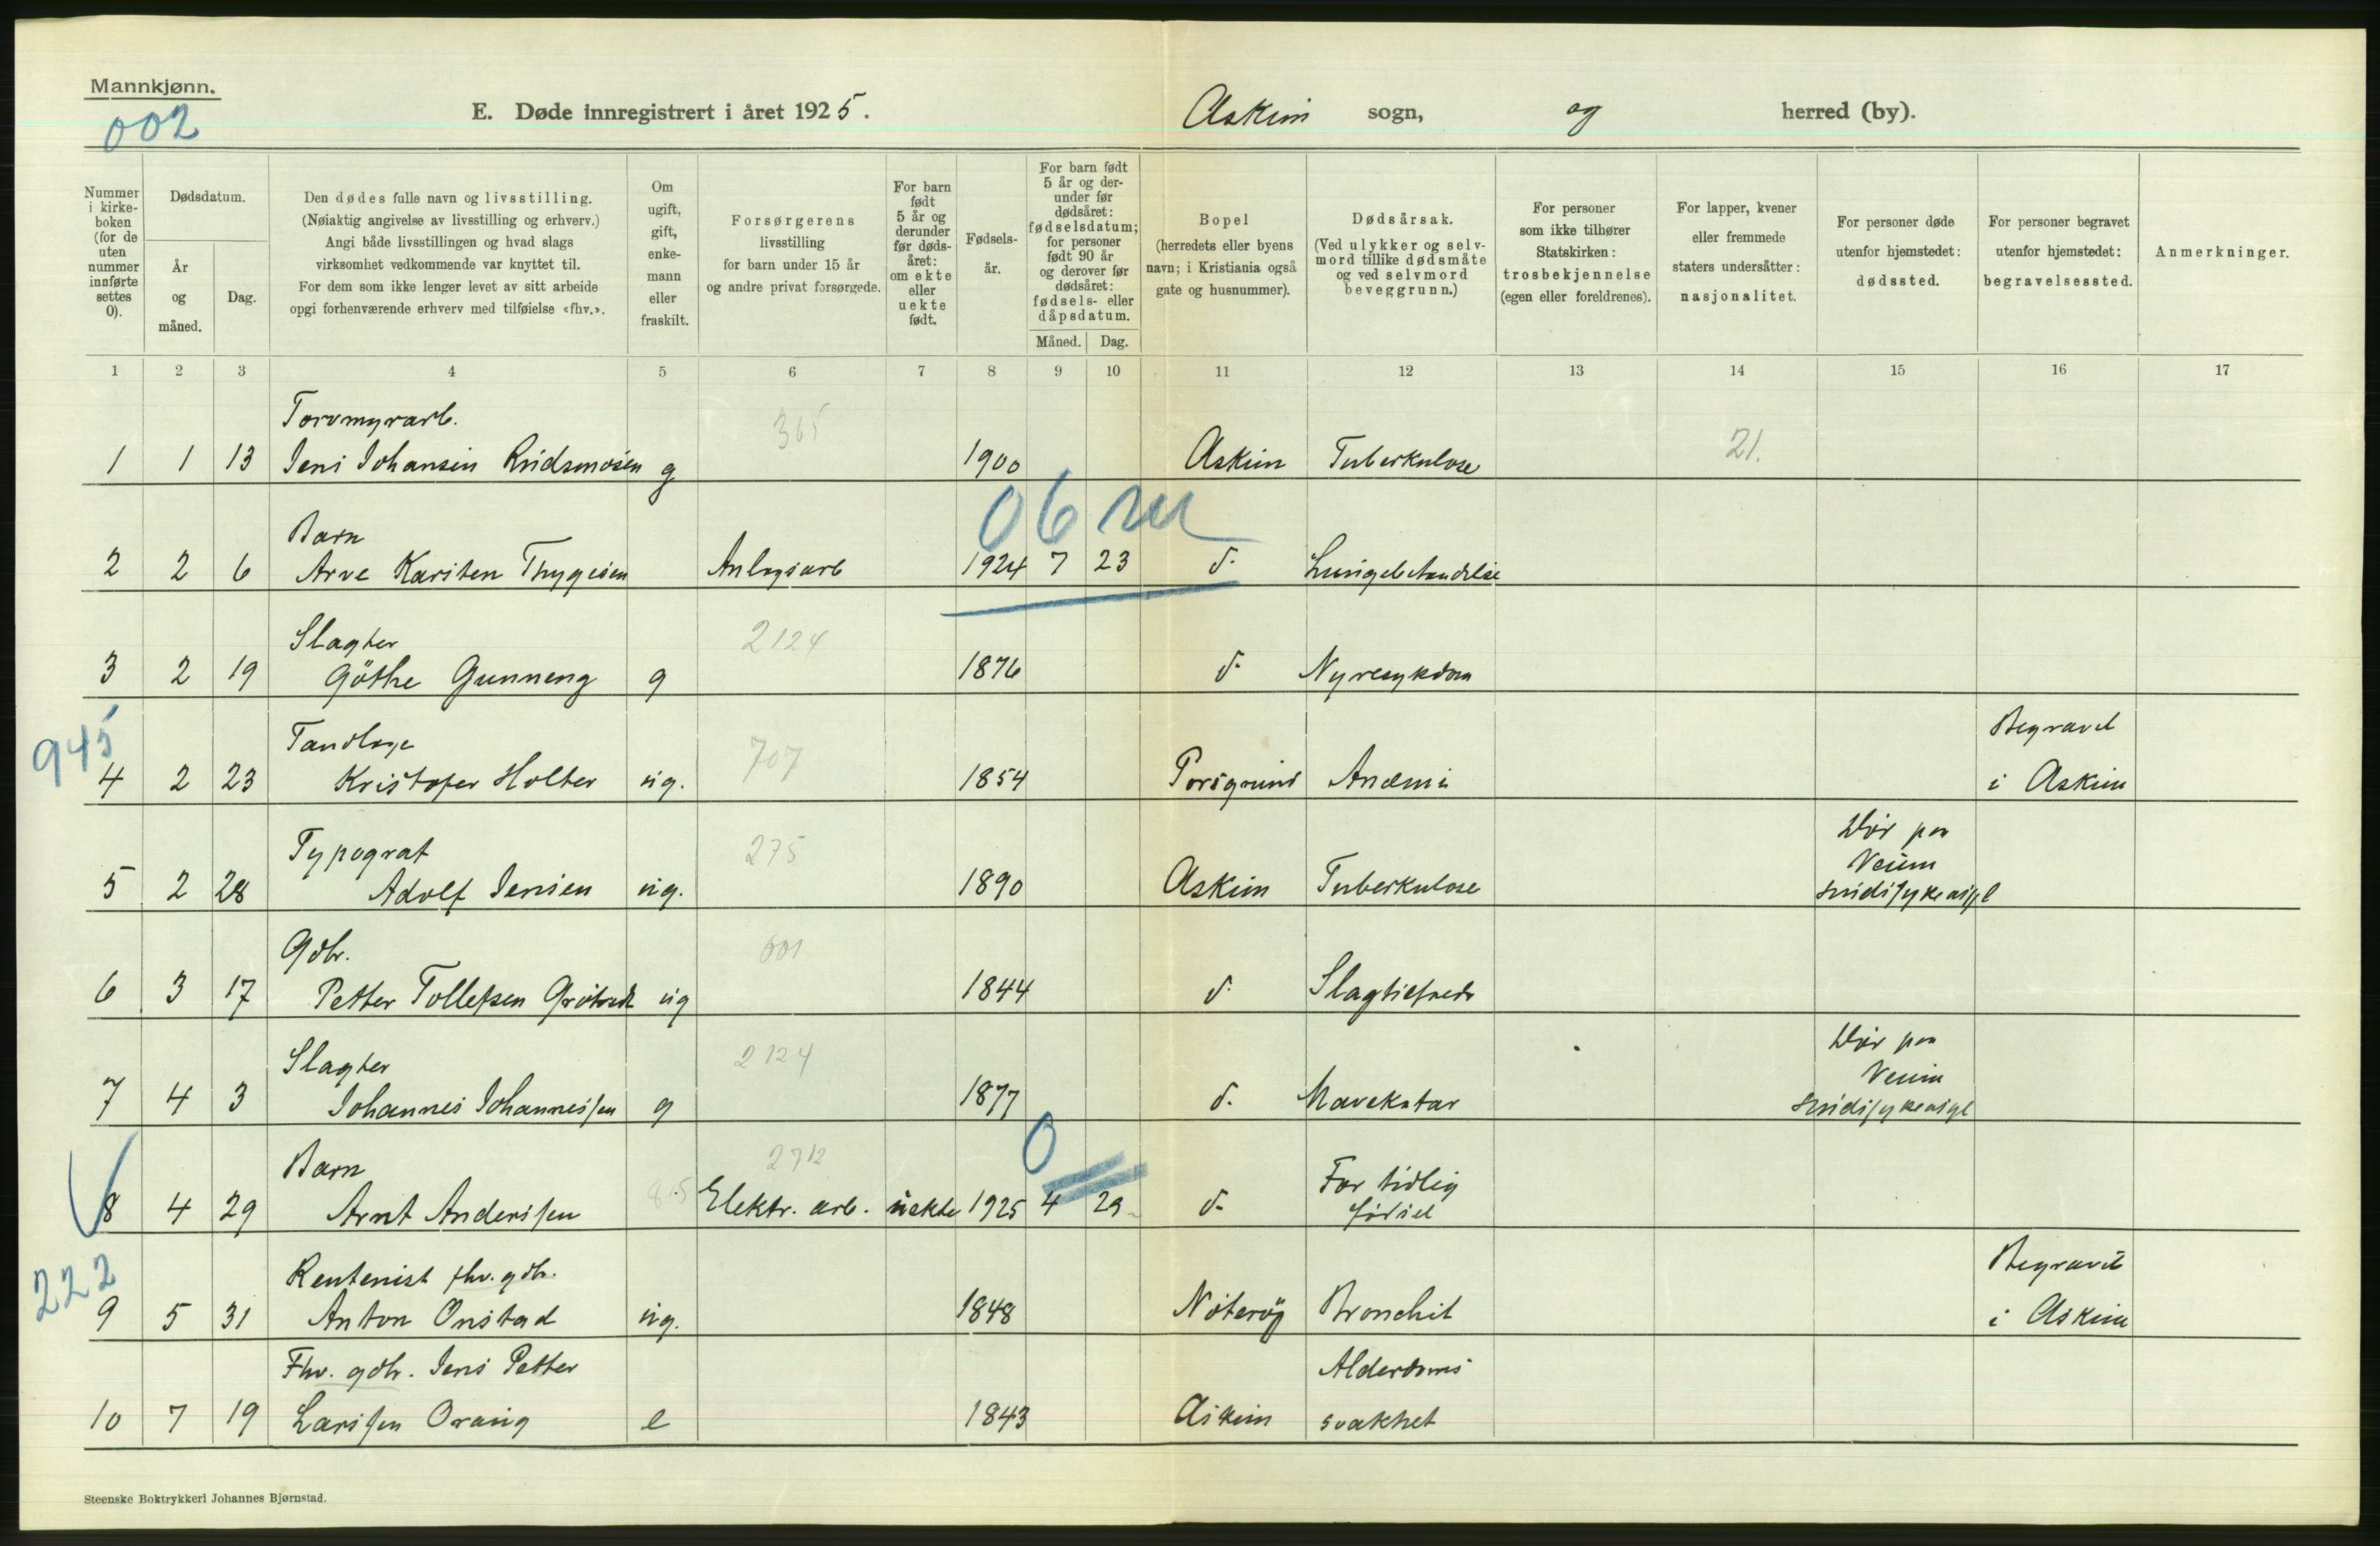 Mannkjønn.
002
E. Døde innregistrert i året 1925. Askim sogn, og herred (by).
Nummer i kirkeboken (for de uten nummer innførte settes 0).
Dødsdatum.
År og måned.
Dag.
Den dødes fulle navn og livsstilling.
(Nøiaktig angivelse av livsstilling og erhverv.)
Angi både livsstillingen og hvad slags
virksomhet vedkommende var knyttet til.
For dem som ikke lenger levet av sitt arbeide
opgi forhenværende erhverv med tilføielse «fhv.».
Om ugift, gift, enkemann eller fraskilt.
Forsørgerens
livsstilling
for barn under 15 år
og andre privat forsørgede.
For barn født 5 år og derunder før dødsåret: om ekte eller uekte født.
Fødselsår.
For barn født 5 år og derunder før dødsåret: fødselsdatum; for personer født 90 år og derover før dødsåret: fødsels- eller dåpsdatum.
Måned. Dag.
Bopel
(herredets eller byens
navn; i Kristiania også
gate og husnummer).
Dødsårsak.
(Ved ulykker og selvmord tillike dødsmåte
og ved selvmord
beveggrunn.)
For personer
som ikke tilhører
Statskirken:
trosbekjennelse
(egen eller foreldrenes).
For lapper, kvener
eller fremmede
staters undersåtter:
nasjonalitet.
For personer døde
utenfor hjemstedet:
dødssted.
For personer begravet
utenfor hjemstedet:
begravelsessted.
Anmerkninger.
1 2 3 4 5 6 7 8 9 10 11 12 13 14 15 16 17
Torvmyrarb. 365
1 1 13 Jens Johansen g 1900 Askim Tuberkulose 21.
06 m
Barn
2 2 6 Arve Karsten Thygesen Anlegsarb 1924 7 23 d. Lungebetændelse
Slagter 2124
3 2 19 Göthe Gunneng g 1876 d. Nyresykdom
945 Tandlæge 707 Begravet
4 2 23 Kristofer Holter ug. 1854 Porsgrund Anæmi i Askim
Typograf 275 Død paa
Veum
5 2 28 Adolf Jensen ug. 1890 Askim Tuberkulose
Gdbr. 601
6 3 17 Petter Tollefsen ug 1844 d. Slagtilfælde
Slagter 2124 Død paa
Veum
7 4 3 Johannes Johannessen g 1877 d. Mavekatar
Barn 2712 0 For tidlig
8 4 29 Arnt Anderssen Elektr. arb. uekte 1925 4 29 d. fødsel
222 Rentenist fhv. gdbr. Begravet
9 5 31 Anton Onstad ug. 1848 Nøterøy Bronchit i Askim
Fhv. gdbr. Jens Petter Alderdoms
10 7 19 Larssen e 1843 Askim svakhet
Steenske Boktrykkeri Johannes Bjørnstad.